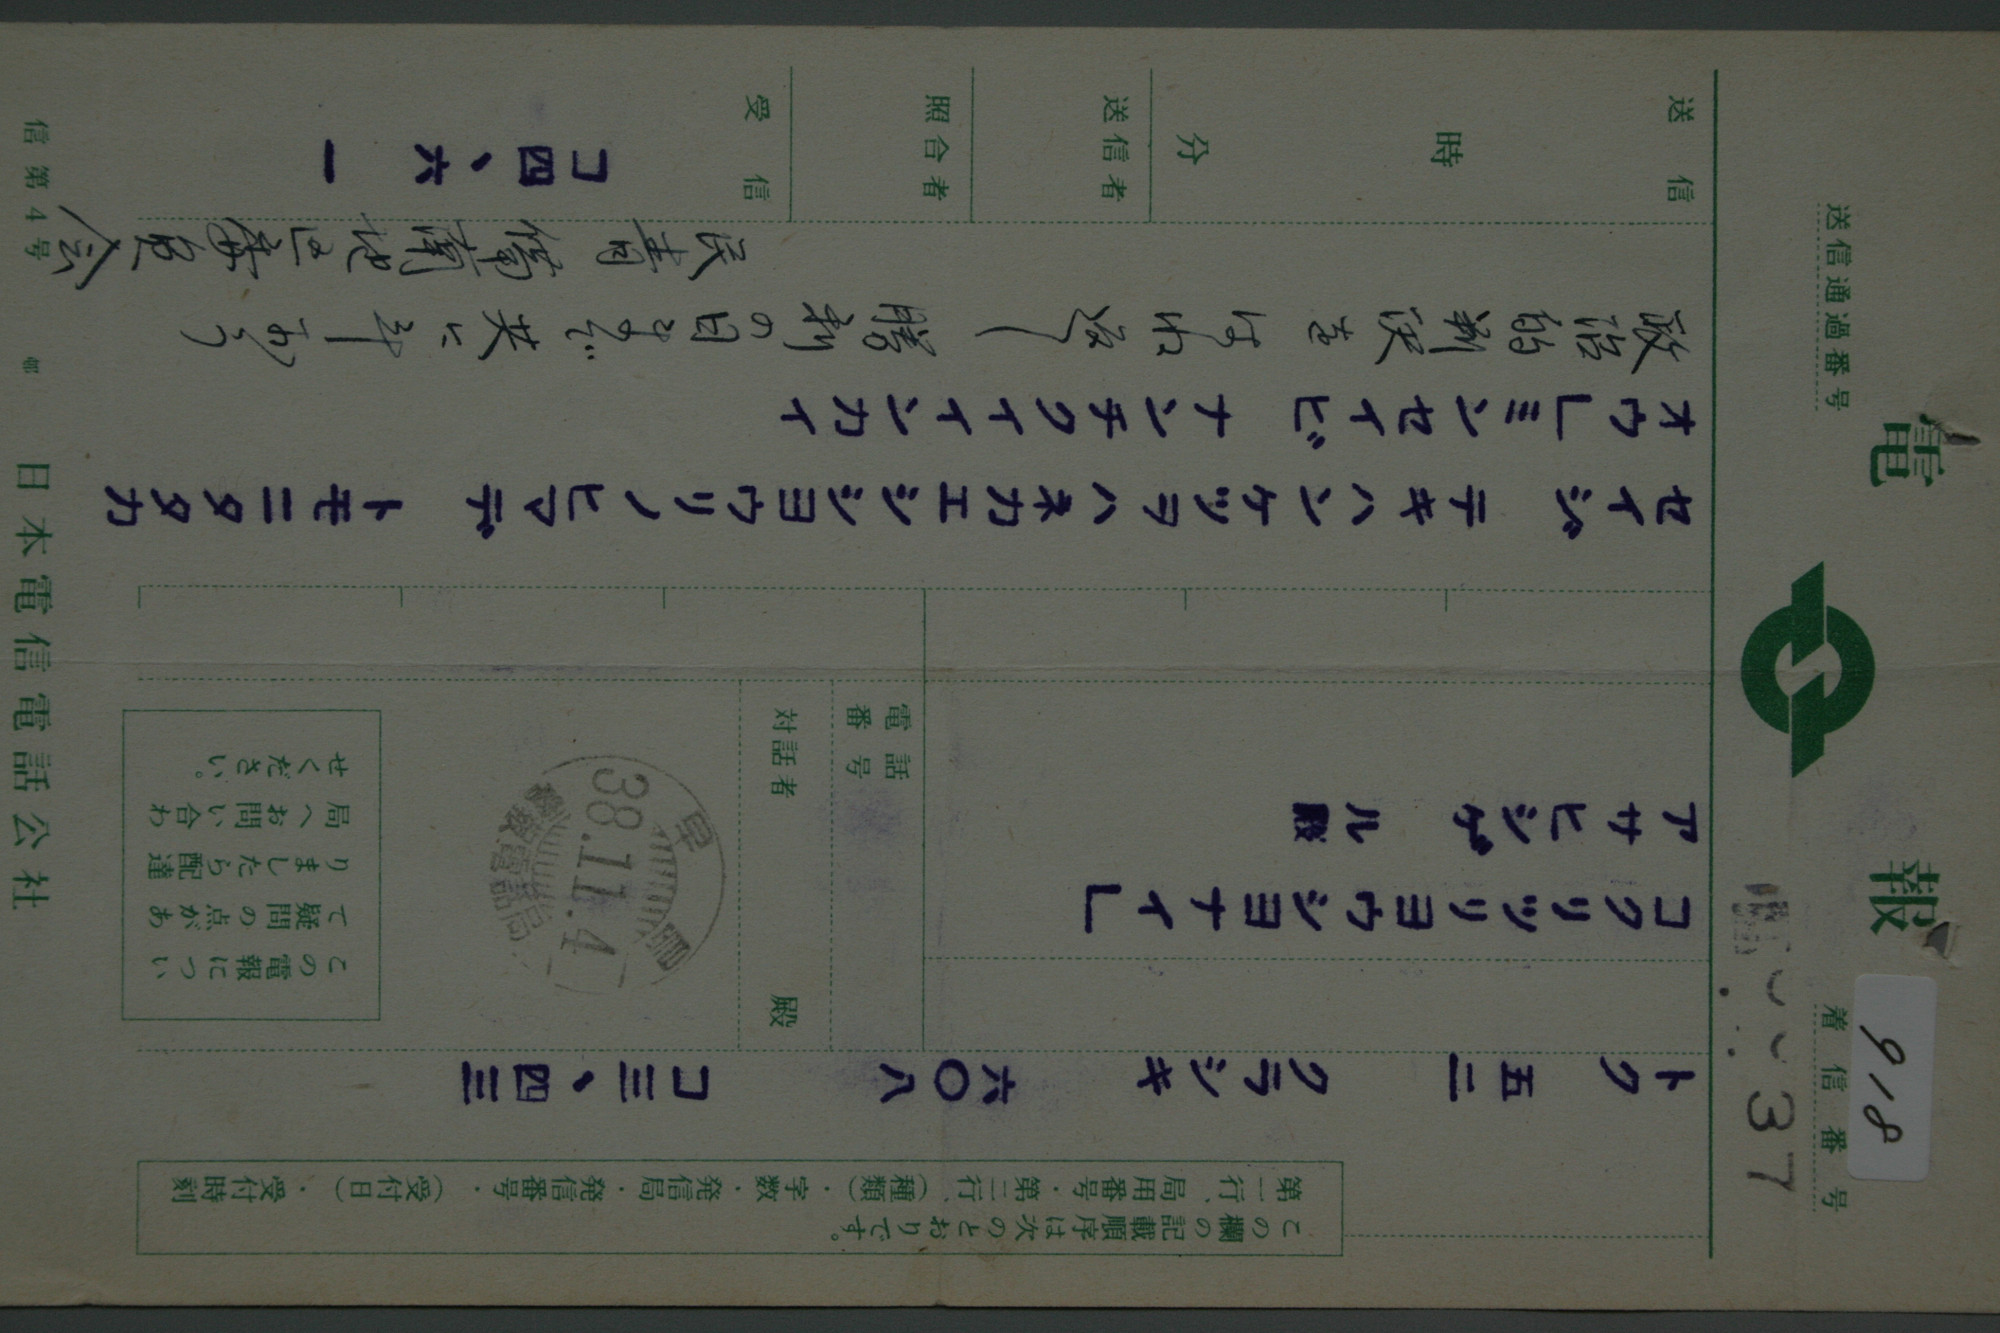 電報
送信通過番号
着信番号
918
37
この欄の記載順序は次のとおりです。
第一行、局用番号・第二行、(種類)・字数・発信局・発信番号・(受付日)・受付時刻
トク 五二 クラシキ 六〇八 コ三、四三
コクリツリヨウシヨナイ」
アサヒシゲル殿
電話番号
対話者 殿
早島
38.11.4
電報電話局
この電報につい
て疑問の点があ
りましたら配達
局へお問い合わ
せください。
セイジ テキハンケツヲハネカエシシヨウリノヒマデ トモニタタカ
オウ」ミンセイビ ナンチクイインカイ
政治的判決をはね返し 勝利の日まで共に斗おう
民青備南地区委員会
送信 時 分
送信者
照合者
受信
コ四、六一
信第4号
日本電信電話公社